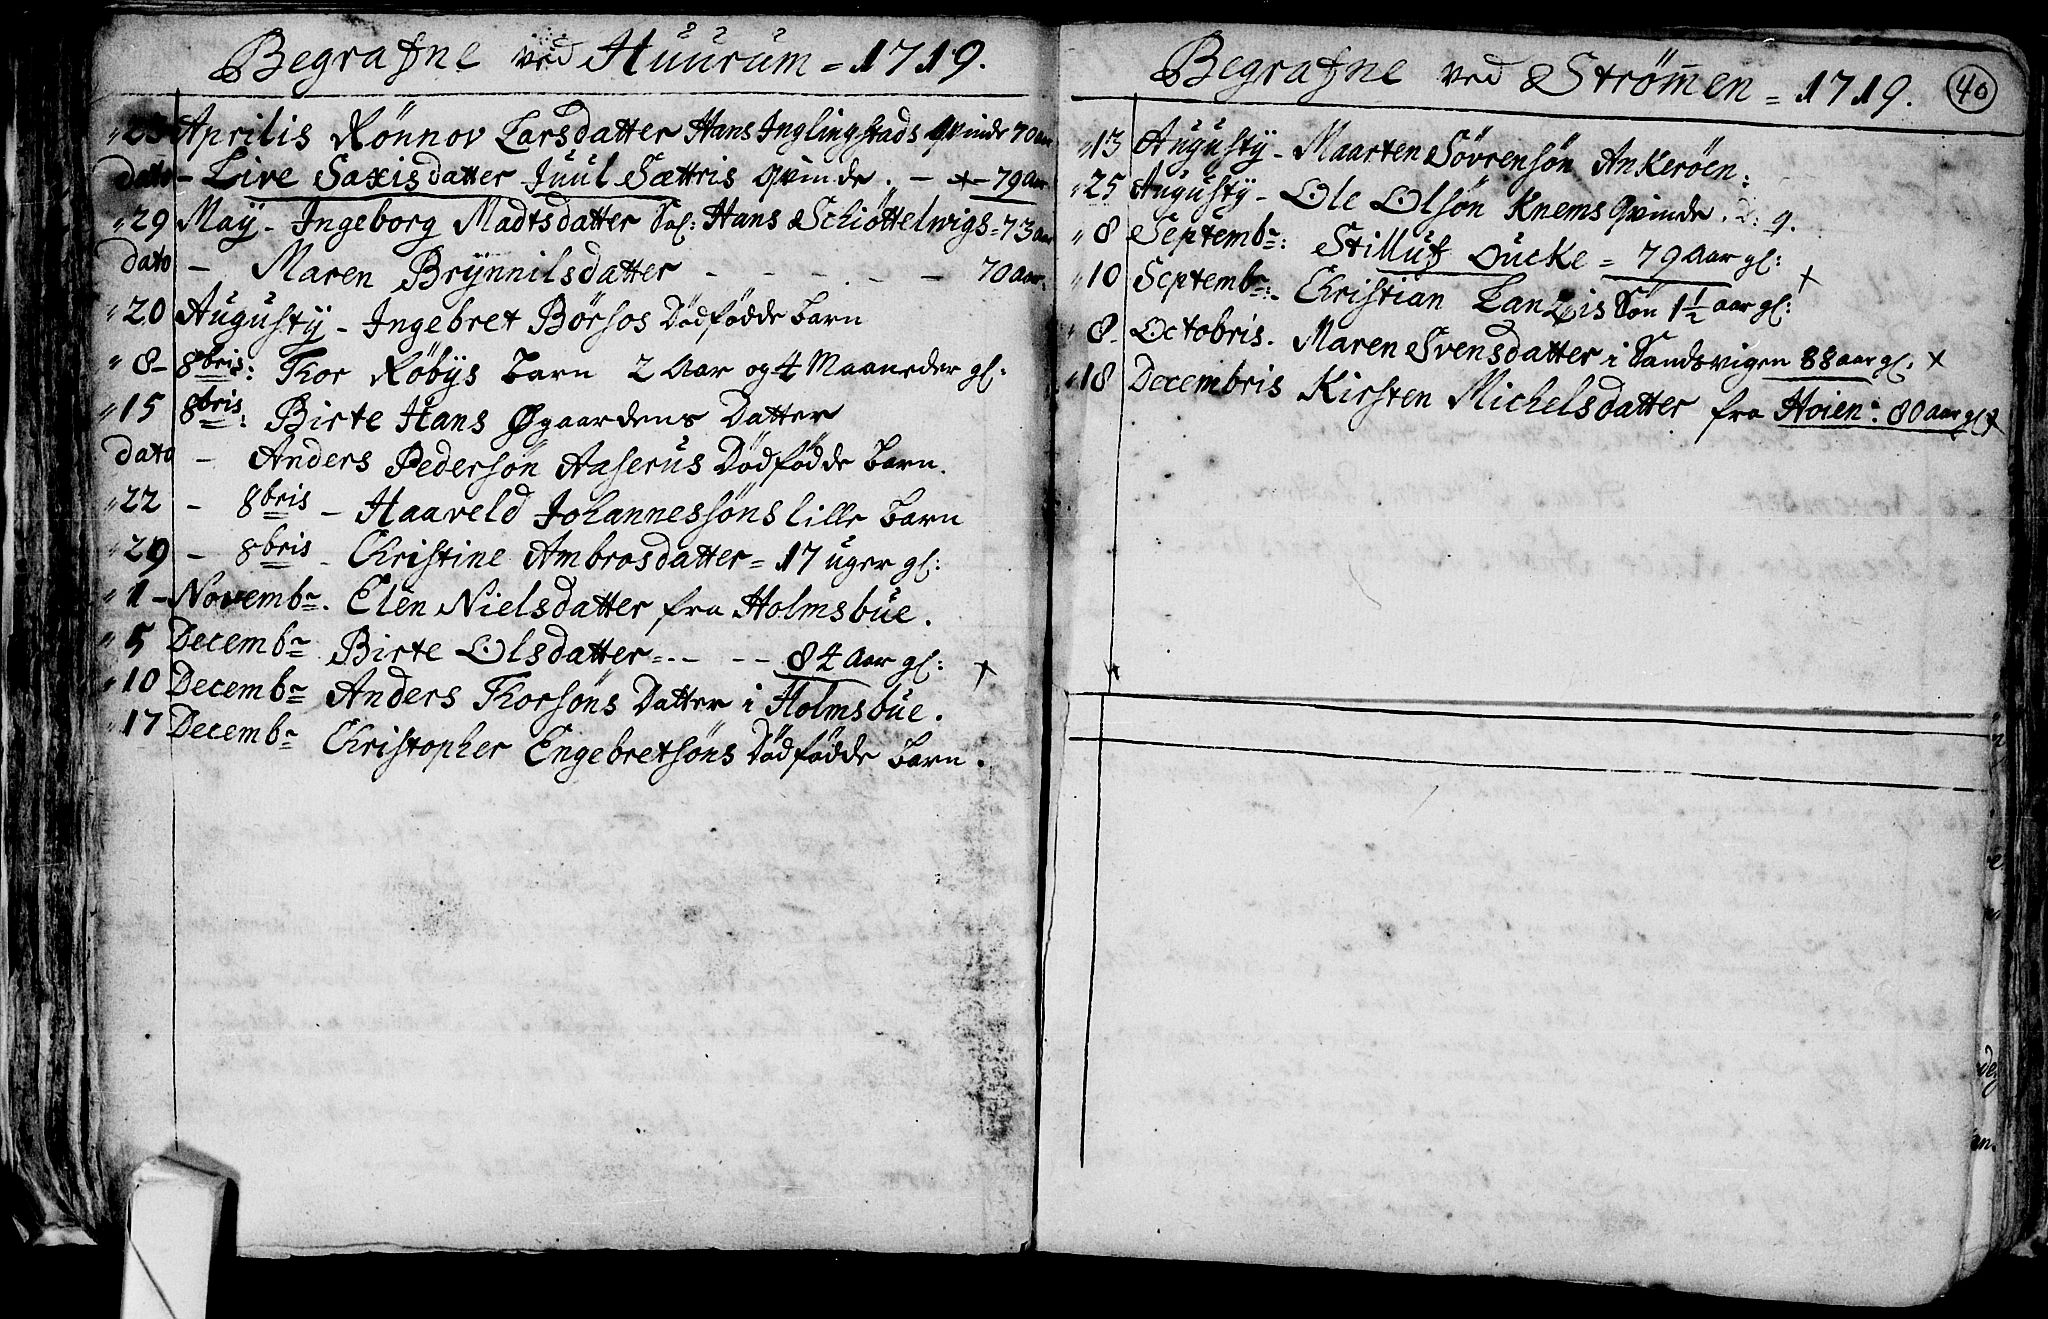 Begrafne ved Huurum = 1719.
23 Aprilis Rönnov Larsdatter Hans Inglingstads Qvinde 70 aar
dato - Live Saxisdatter Juul Sættris Qvinde. - + - 79 Aar.
29 Maÿ - Ingeborg Madtsdatter Sal: Hans Schiöttelwigs = 73 aar
dato - Maren Brÿnnilsdatter - - - - - 70 aar.
20 Augustÿ - Ingebret Börsos Dödfödde Barn
8 - 8bris: Thor Röbÿs Barn 2 Aar og 4 Maaneder gl:
15 8bris: Birte Hans Øgaardens Datter
dato - Anders Pedersön Aaserus Dödfödde Barn.
22 - 8bris - Haaveld Johannessöns lille Barn
29 - 8bris - Christine Ambrosdatter = 17 uger gl:
1 - Novembr. Elen Nielsdatter fra Holmsbüe.
5 Decembr Birte Olsdatter = - - - - 84 Aar gl: +
10 Decembr Anders Thorsöns Datter i Holmsbüe.
17 Decembr Christopher Engebretsöns Dödfödde Barn.
Begrafne ved Strömen = 1719. 40
13 Augustÿ - Maarten Sövrensön Ankeröen:
25 Augustÿ - Ole Olsön Knems Qvinde.
8 Septembr: Stilluf Oucke = 79 Aar gl:
10 Septembr: - Christian Lanzis Sön 1½ aar gl: +
8 - Octobris. Maren Svensdatter i Sandsvigen 88 aar gl. +
18 Decembris Kirsten Michelsdatter fra Hoien: 80 Aar gl +